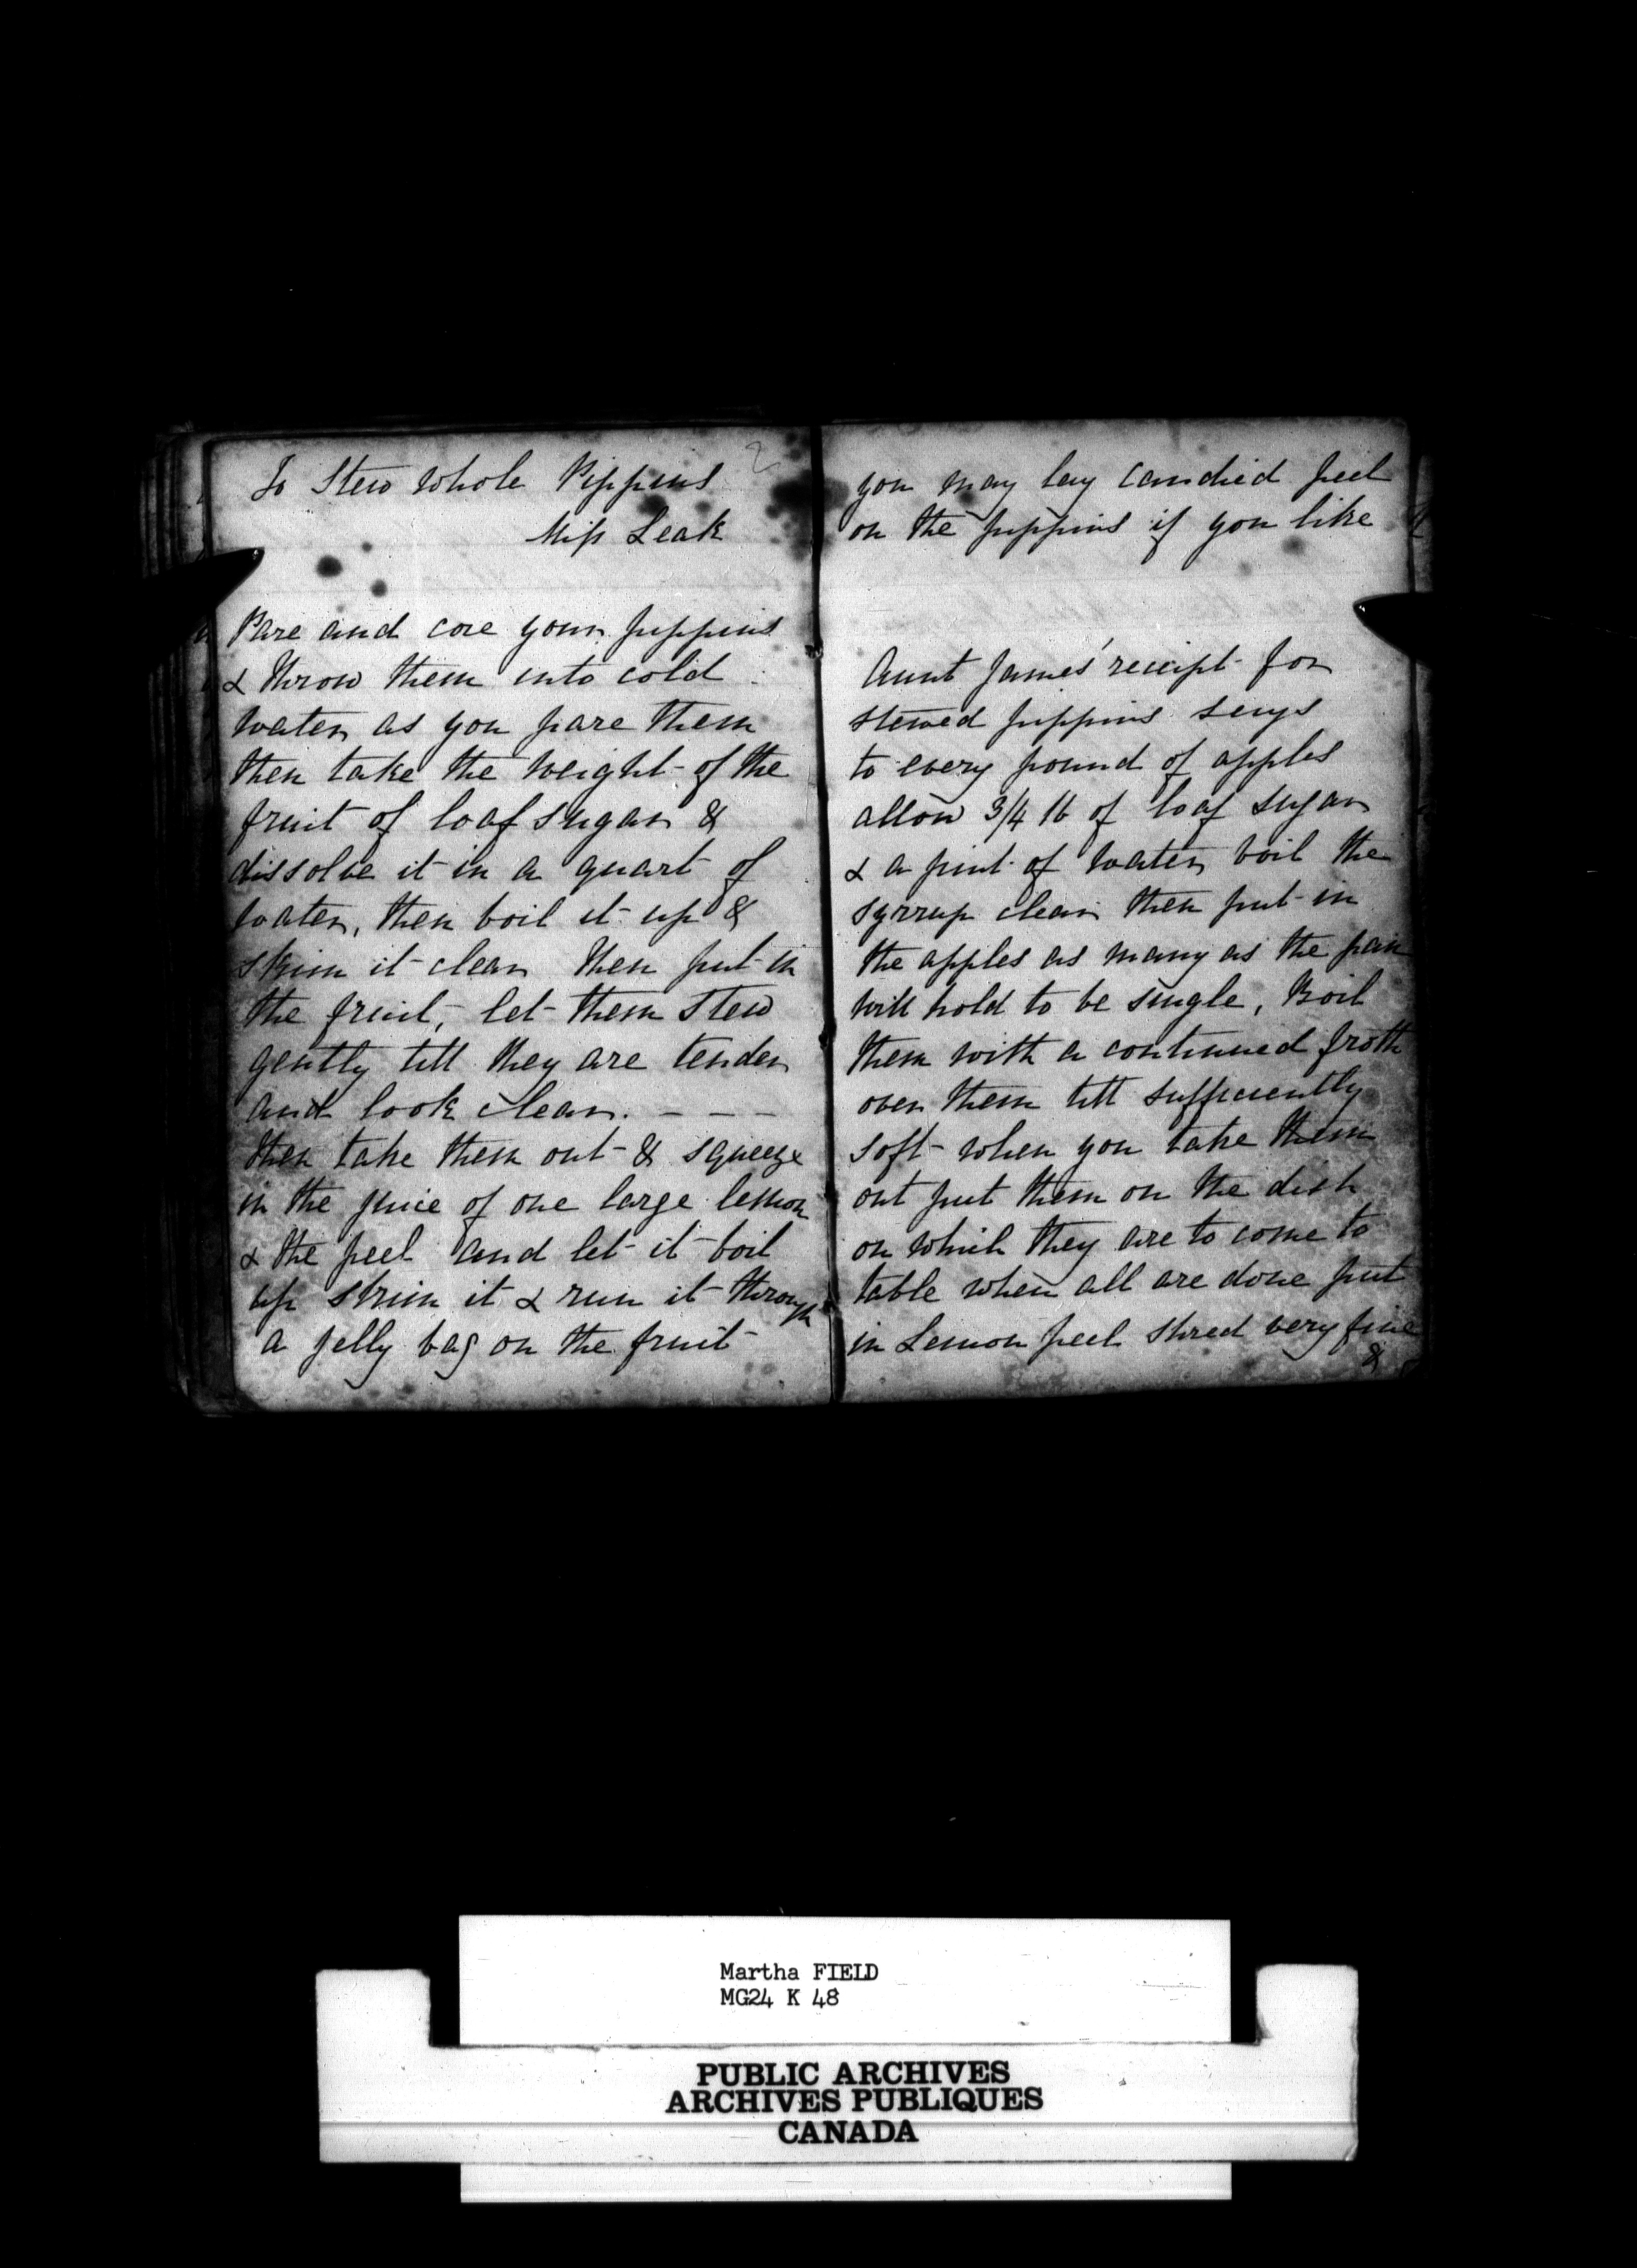 2
To Stew whole Pippins
Miss Leak
Pare and core your pippins
& throw them into cold
water as you pare them
then take the weight of the
fruit of loaf sugar &
dissolve it in a quart of
water, then boil it up &
skim it clear then put in
the fruit, let them stew
gently till they are tender
and look clear. - - -
then take them out & squeeze
in the juice of one large lemon
& the peel and let it boil
up skim it & run it through
a jelly bag on the fruit
you may lay candied peel
on the pippins if you like
Aunt James' receipt for
stewed pippins says
to every pound of apples
allow 3/4 lb of loaf sugar
& a pint of water boil the
syrrup clear then put in
the apples as many as the pan
will hold to be single, Boil
them with a continued froth
over them till sufficiently
soft when you take them
out put them on the dish
on which they are to come to
table when all are done put
in Lemon peel shred very fine
&
Martha FIELD
MG24 K 48
PUBLIC ARCHIVES
ARCHIVES PUBLIQUES
CANADA